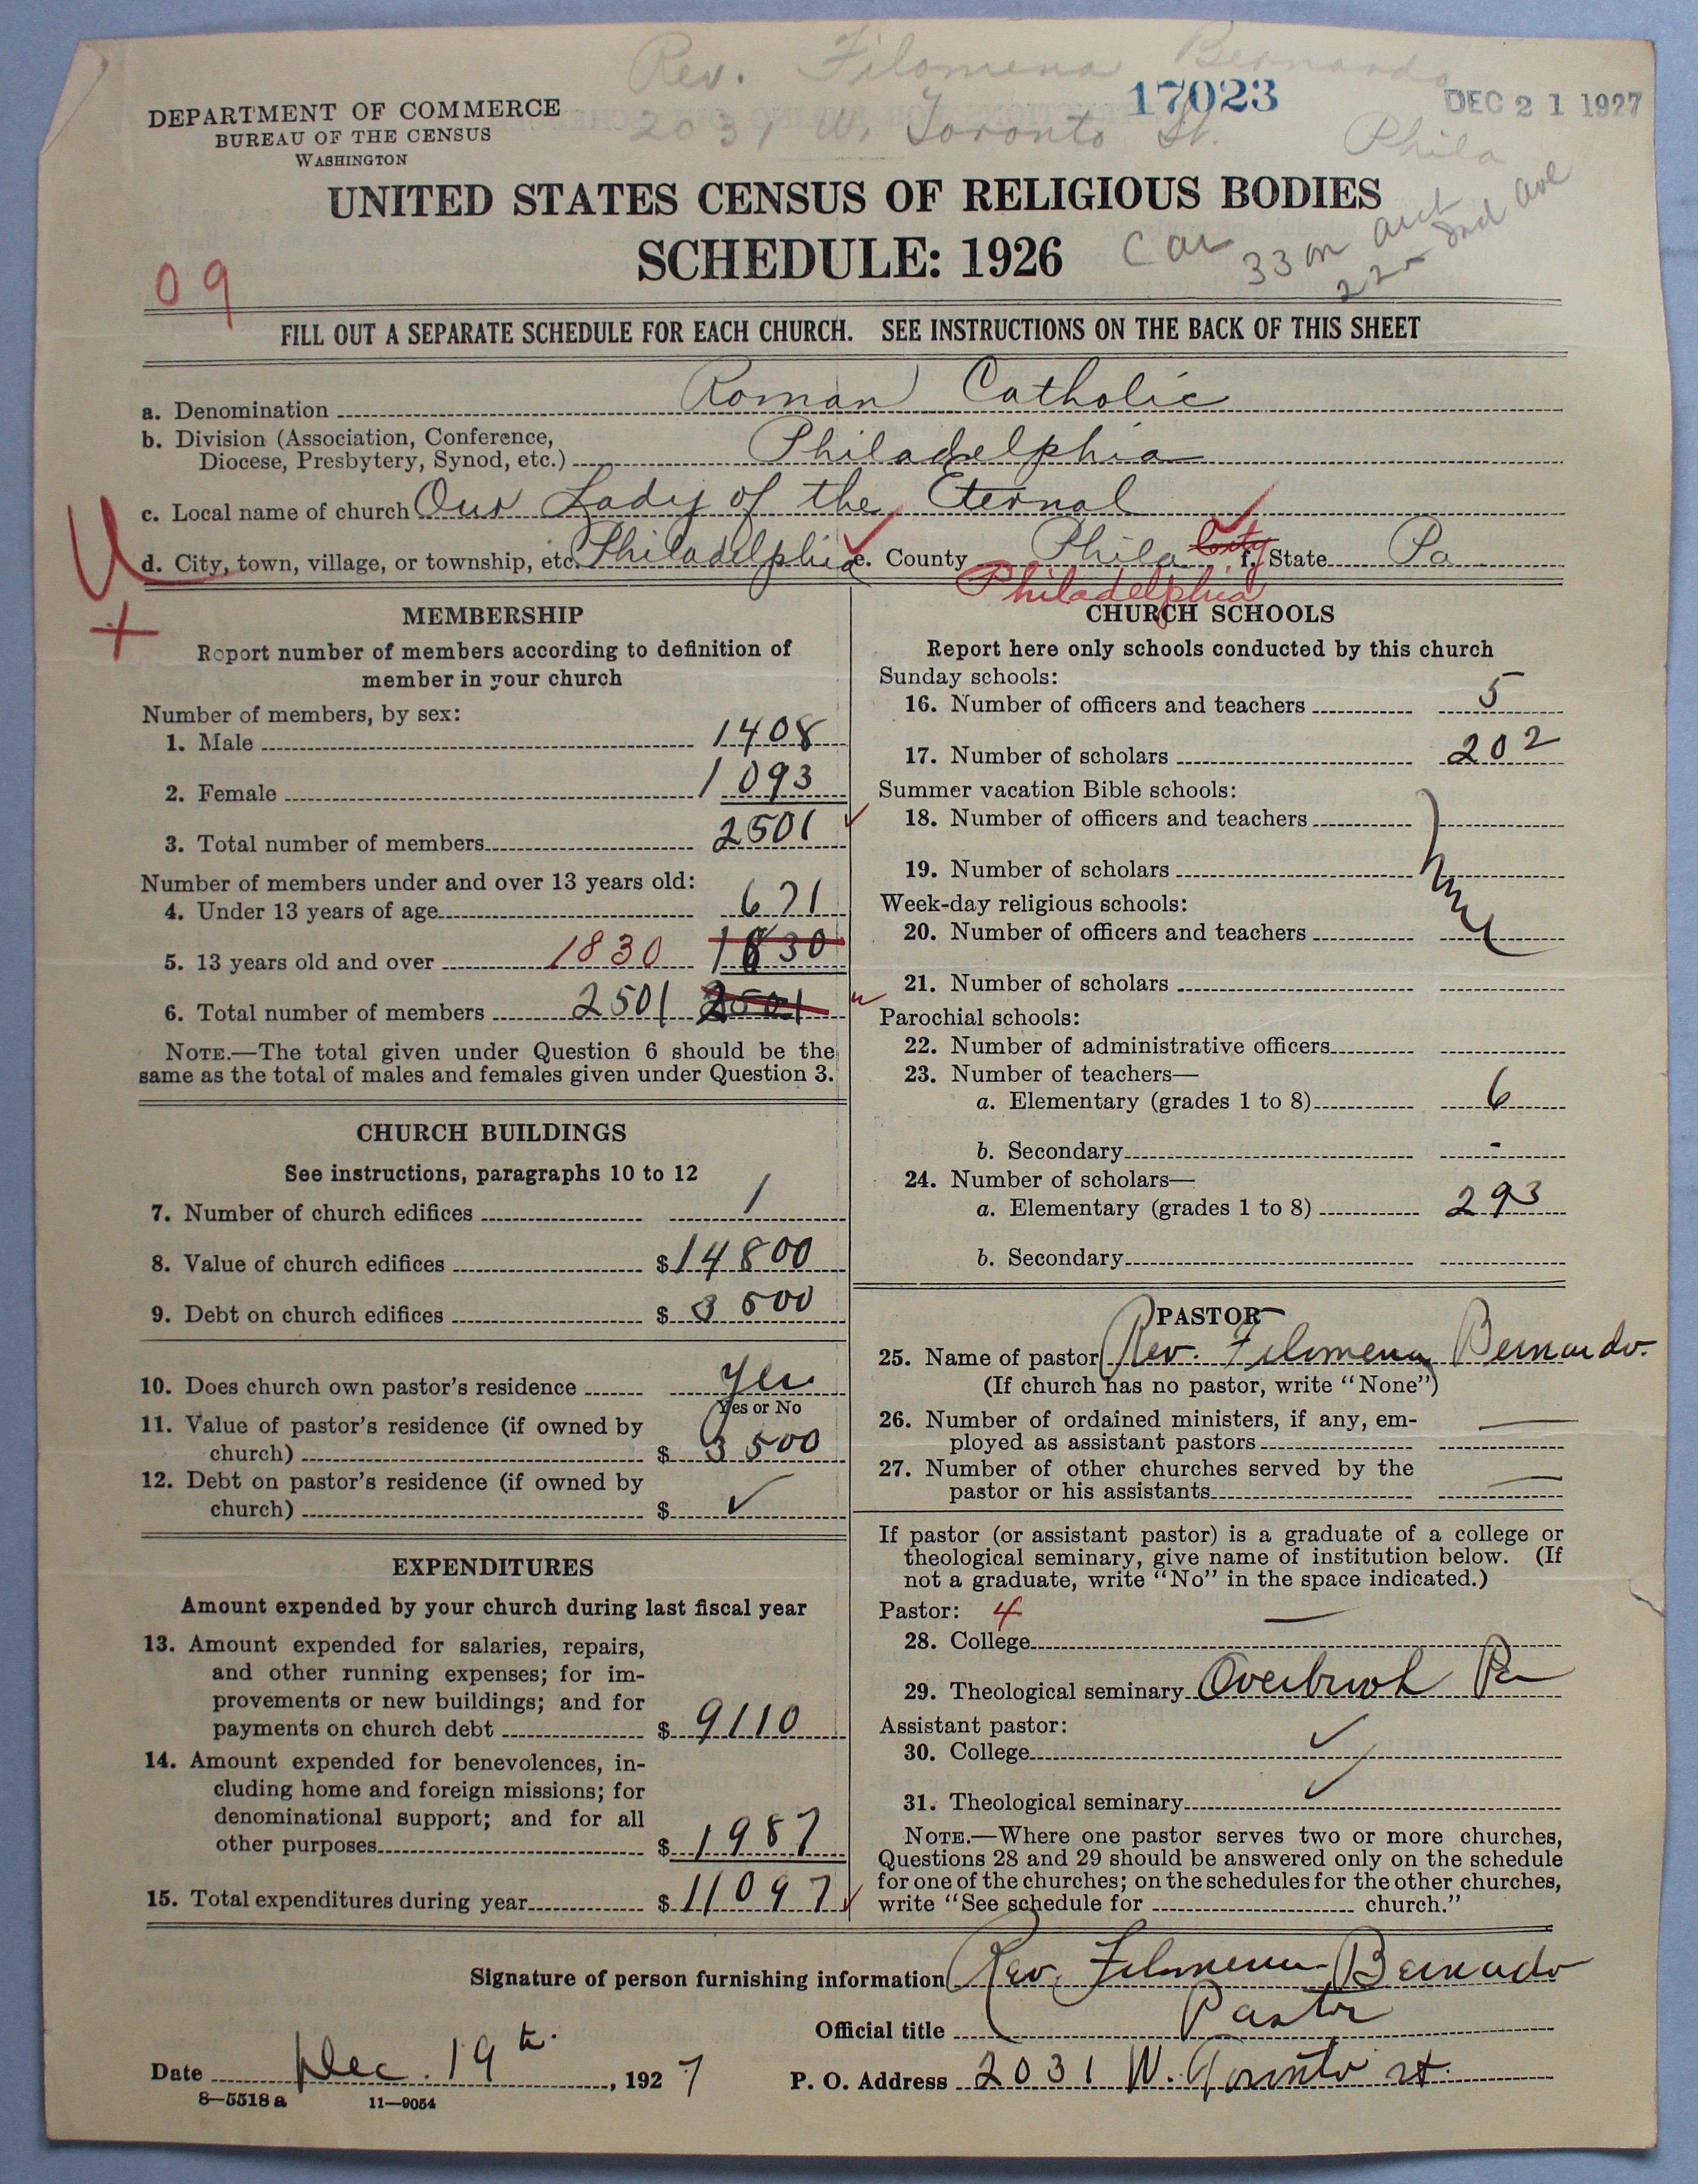 Rev. Filomena Bernardo
17023
DEC 21 1927
2031 W. Toronto St. Phila
DEPARTMENT OF COMMERCE
BUREAU OF THE CENSUS
WASHINGTON
UNITED STATES CENSUS OF RELIGIOUS BODIES
SCHEDULE: 1926
Car 33 on
22nd ave
09
FILL OUT A SEPARATE SCHEDULE FOR EACH CHURCH. SEE INSTRUCTIONS ON THE BACK OF THIS SHEET
a. Denomination Roman Catholic
b. Division (Association, Conference,
Diocese, Presbytery, Synod, etc.) Philadelphia
c. Local name of church Our Lady of the Eternal
d. City, town, village, or township, etc. Philadelphia e. County Phila City f. State Pa
Philadelphia
MEMBERSHIP
Report number of members according to definition of
member in your church
Number of members, by sex:
1. Male 1408
2. Female 1093
3. Total number of members 2501
Number of members under and over 13 years old:
4. Under 13 years of age 671
5. 13 years old and over 1830 1830
6. Total number of members 2501 2501
NOTE.—The total given under Question 6 should be the
same as the total of males and females given under Question 3.
CHURCH BUILDINGS
See instructions, paragraphs 10 to 12
7. Number of church edifices 1
8. Value of church edifices $14800
9. Debt on church edifices $3500
10. Does church own pastor's residence Yes
Yes or No
11. Value of pastor's residence (if owned by
church) $3500
12. Debt on pastor's residence (if owned by
church) $ ✓
EXPENDITURES
Amount expended by your church during last fiscal year
13. Amount expended for salaries, repairs,
and other running expenses; for im-
provements or new buildings; and for
payments on church debt $9110
14. Amount expended for benevolences, in-
cluding home and foreign missions; for
denominational support; and for all
other purposes $1987
15. Total expenditures during year $11097
CHURCH SCHOOLS
Report here only schools conducted by this church
Sunday schools:
16. Number of officers and teachers 5
17. Number of scholars 202
Summer vacation Bible schools:
18. Number of officers and teachers
19. Number of scholars
none
Week-day religious schools:
20. Number of officers and teachers
21. Number of scholars
Parochial schools:
22. Number of administrative officers
23. Number of teachers—
a. Elementary (grades 1 to 8) 6
b. Secondary -
24. Number of scholars—
a. Elementary (grades 1 to 8) 293
b. Secondary
PASTOR
25. Name of pastor Rev. Filomena Bernardo.
(If church has no pastor, write "None")
26. Number of ordained ministers, if any, em-
ployed as assistant pastors —
27. Number of other churches served by the
pastor or his assistants —
If pastor (or assistant pastor) is a graduate of a college or
theological seminary, give name of institution below. (If
not a graduate, write "No" in the space indicated.)
Pastor: 4
28. College —
29. Theological seminary Overbrook Pa
Assistant pastor:
30. College ✓
31. Theological seminary ✓
NOTE.—Where one pastor serves two or more churches,
Questions 28 and 29 should be answered only on the schedule
for one of the churches; on the schedules for the other churches,
write "See schedule for church."
Signature of person furnishing information Rev. Filomena Bernardo
Official title Pastor
Date Dec. 19th., 1927
P. O. Address 2031 W. Toronto st.
8—5518 a 11—9054